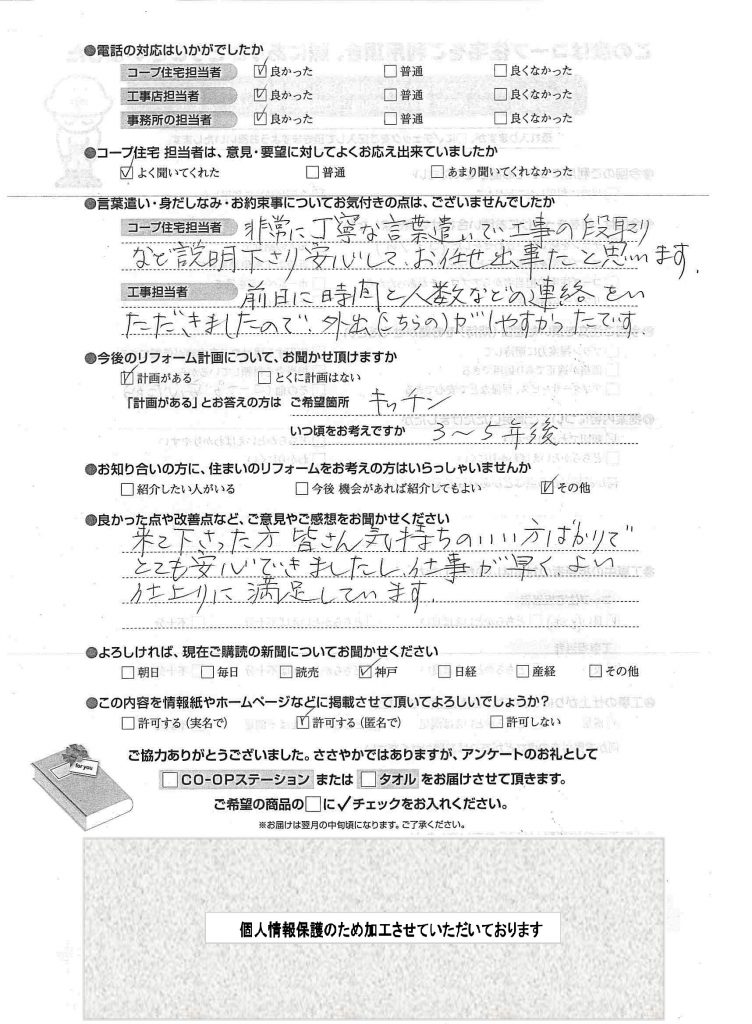 ●電話の対応はいかがでしたか
コープ住宅担当者 ☑良かった □普通 □良くなかった
工事店担当者 ☑良かった □普通 □良くなかった
事務所の担当者 ☑良かった □普通 □良くなかった
●コープ住宅 担当者は、意見・要望に対してよくお応え出来ていましたか
☑よく聞いてくれた □普通 □あまり聞いてくれなかった
●言葉遣い・身だしなみ・お約束事についてお気付きの点は、ございませんでしたか
コープ住宅担当者 非常に丁寧な言葉遣いで、工事の段取り
など説明下さり安心して、お任せ出来たと思います。
工事担当者 前日に時間と人数などの連絡をい
ただきましたので、外出(こちらの)がしやすかったです
●今後のリフォーム計画について、お聞かせ頂けますか
☑計画がある □とくに計画はない
「計画がある」とお答えの方は ご希望箇所 キッチン
いつ頃をお考えですか 3〜5年後
●お知り合いの方に、住まいのリフォームをお考えの方はいらっしゃいませんか
□紹介したい人がいる □今後 機会があれば紹介してもよい ☑その他
●良かった点や改善点など、ご意見やご感想をお聞かせください
来て下さった方 皆さん気持ちのいい方ばかりで
とても安心できましたし、仕事が早くよい
仕上りに満足しています。
●よろしければ、現在ご購読の新聞についてお聞かせください
□朝日 □毎日 □読売 ☑神戸 □日経 □産経 □その他
●この内容を情報紙やホームページなどに掲載させて頂いてよろしいでしょうか?
□許可する(実名で) ☑許可する(匿名で) □許可しない
for you
ご協力ありがとうございました。ささやかではありますが、アンケートのお礼として
□CO-OPステーション または □タオル をお届けさせて頂きます。
ご希望の商品の□に✓チェックをお入れください。
※お届けは翌月の中旬頃になります。ご了承ください。
個人情報保護のため加工させていただいております